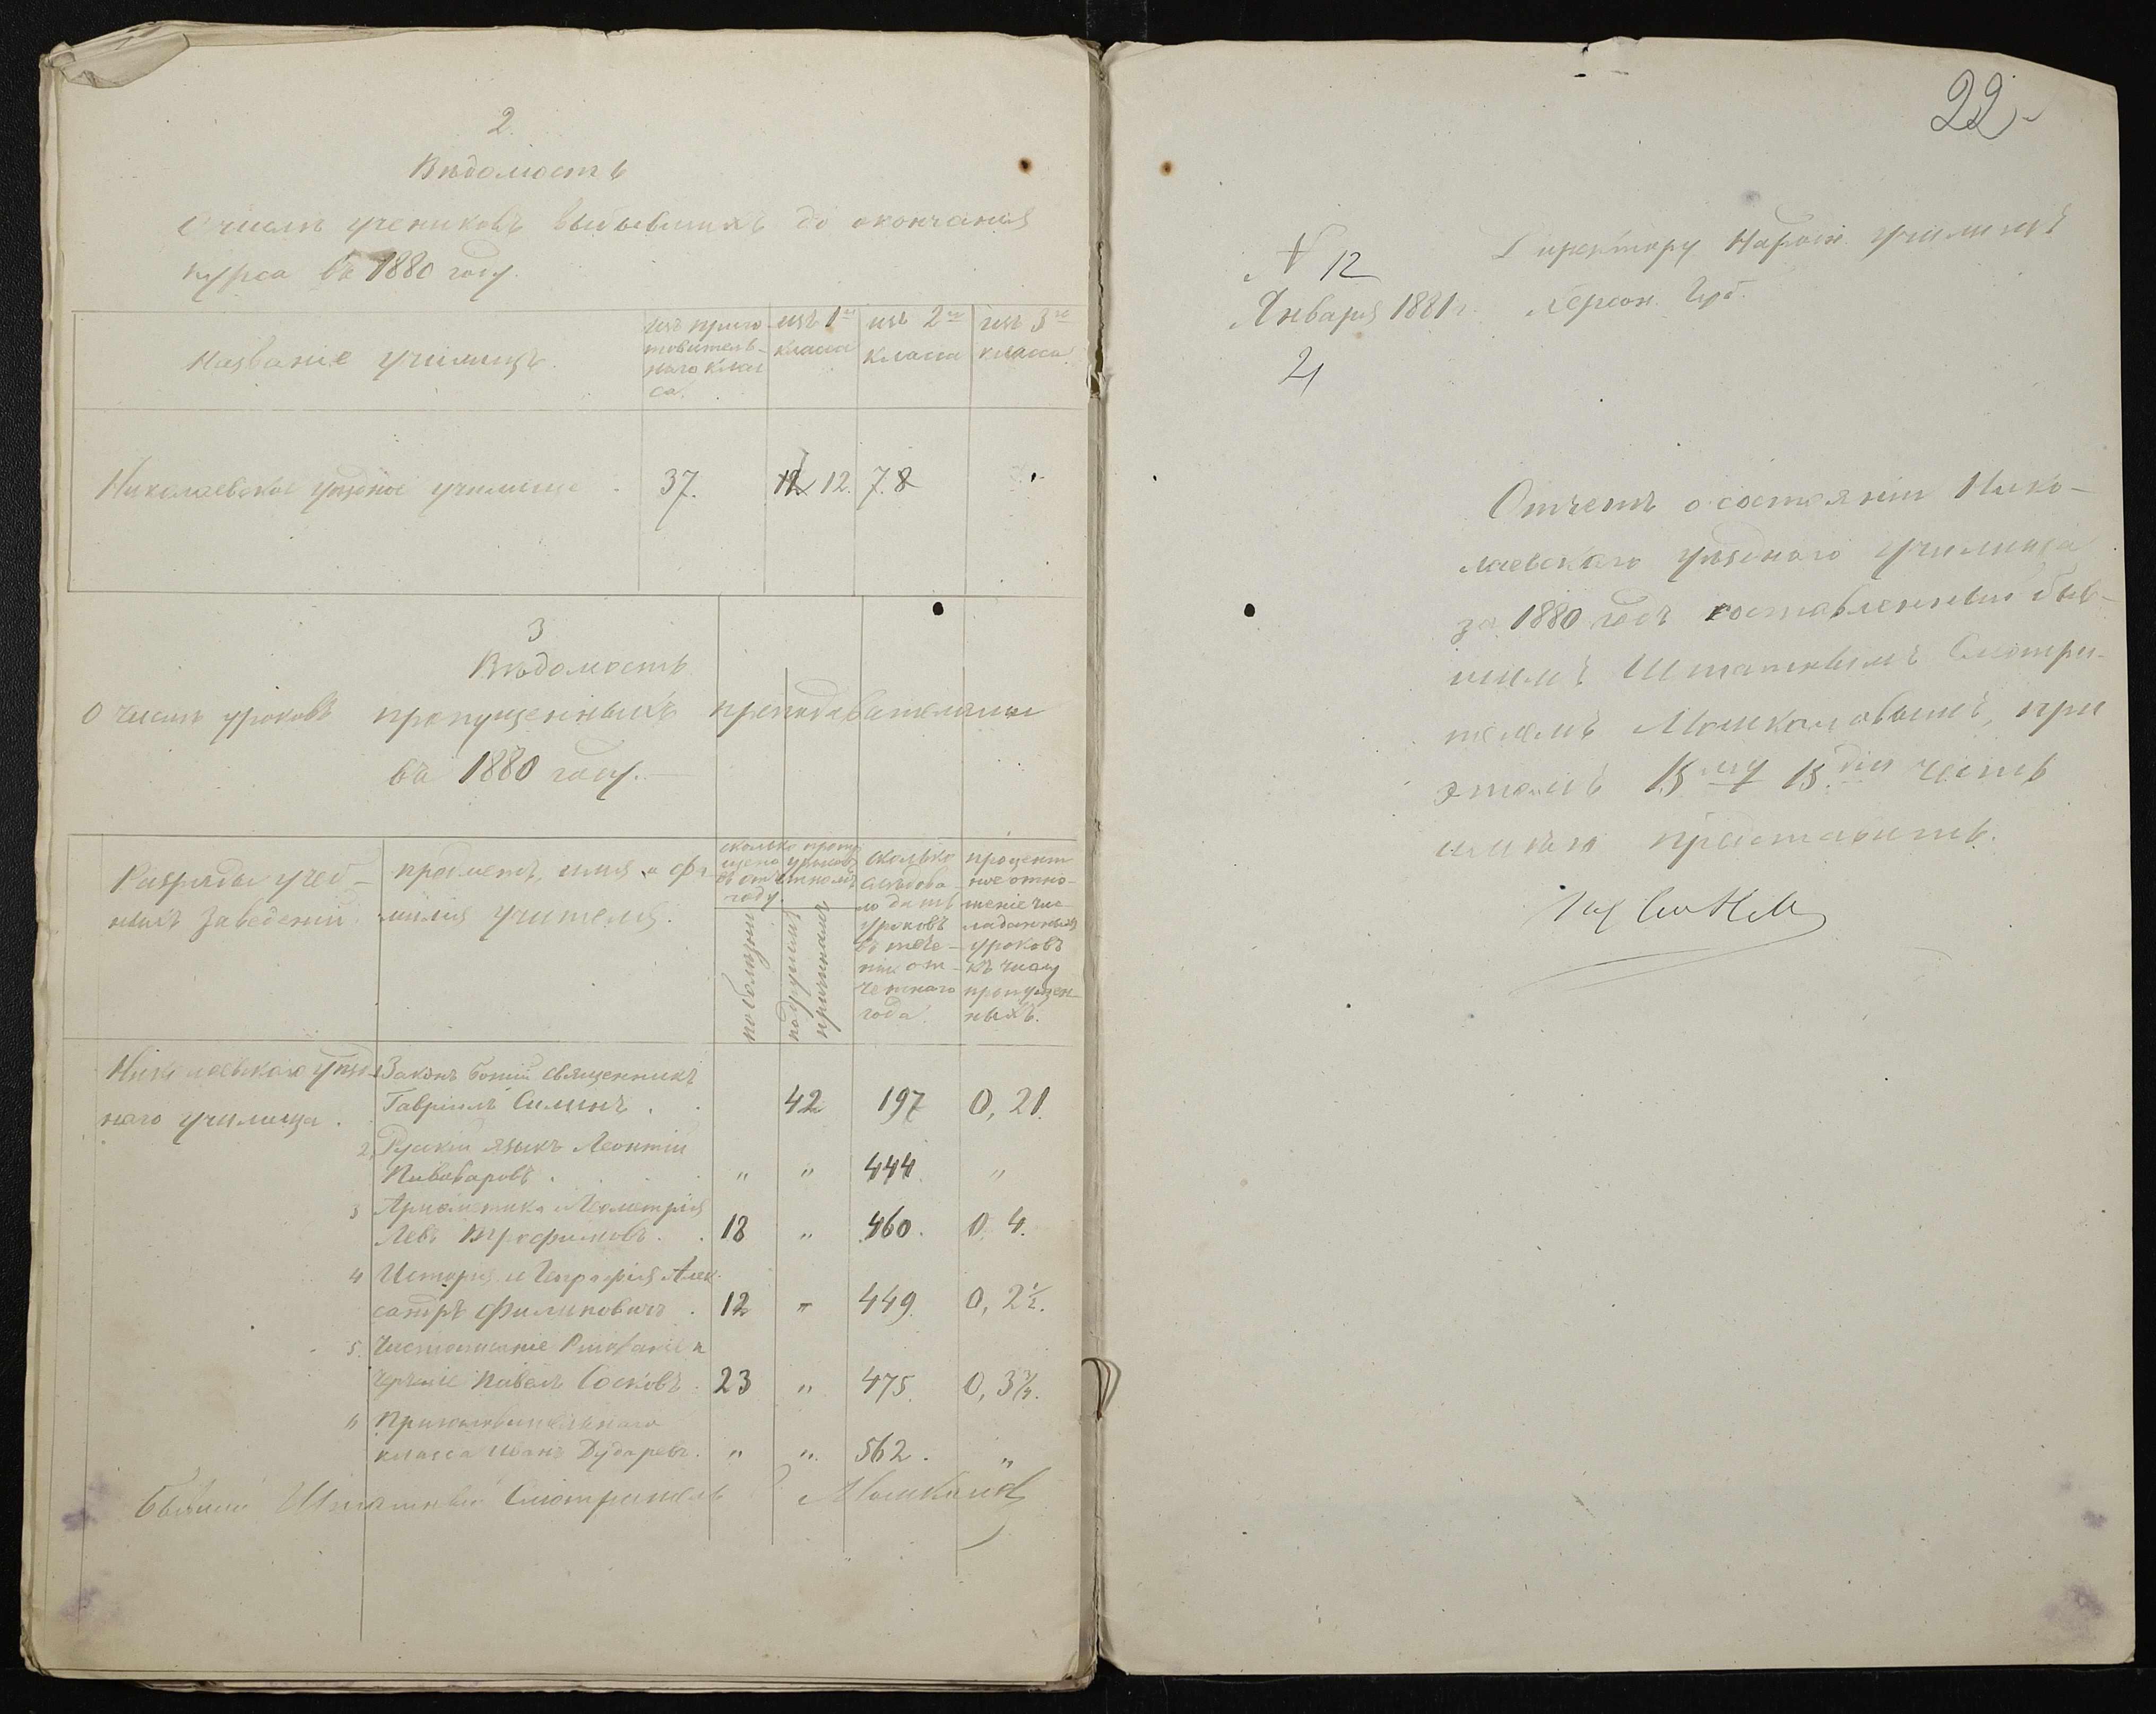 2.
Вѣдомость
О числѣ учениковъ выбывшихъ до окончанія
курса въ 1880 году.
Названіе училищъ.
изъ приго-
товитель-
наго клас
са.
изъ 1го
класса
изъ 2го
класса
изъ 3го
класса.
Николаевское уѣздное училище
37.
12.
7. 8
3
Вѣдомость
О числѣ уроковъ пропущенныхъ преподавателями
въ 1880 году.
Разряды учеб-
ныхъ заведеній.
предметъ, имя и фа-
милія учителя.
сколько пропу
щено уроковъ
въ отчетномъ
году.
по болѣзни
по другимъ
причинамъ
сколько
слѣдова-
ло дать
уроковъ
въ тече-
ніи от-
четнаго
года.
процент
ное отно-
шеніе чис
ла данныхъ
уроковъ
къ числу
пропущен-
ныхъ.
Николаевскаго уѣзд-
наго училища.
Законъ Божій священникъ
Гавріилъ Силинъ . 42 197 0, 21.
2. Русскій языкъ Леонтій
Пивоваровъ . " " 444. "
3 Ариѳметика и Геометрія
Левъ Трофимовъ . 18 " 460. 0, 4.
4 Исторія и Географія Алек
сандръ Филиповичъ . 12 " 449. 0, 2 1/2.
5. Чистописаніе Рисованіе и
черченіе Павелъ Сосковъ . 23 " 475. 0, 3 3/4.
6 Приготовительнаго
класса Иванъ Дударевъ . " " 562. "
Бывшій Штатный Смотритель
22
N 12
Января 1881 г.
21
Директору Народн. училищъ
Херсон. Губ.
Отчетъ о состояніи Нико-
лаевскаго уѣзднаго училища
за 1880 годъ составленный быв-
шимъ Штатнымъ Смотри-
телемъ Мошкаловымъ, при
этомъ 15му 15.дія честь
имѣю представить.